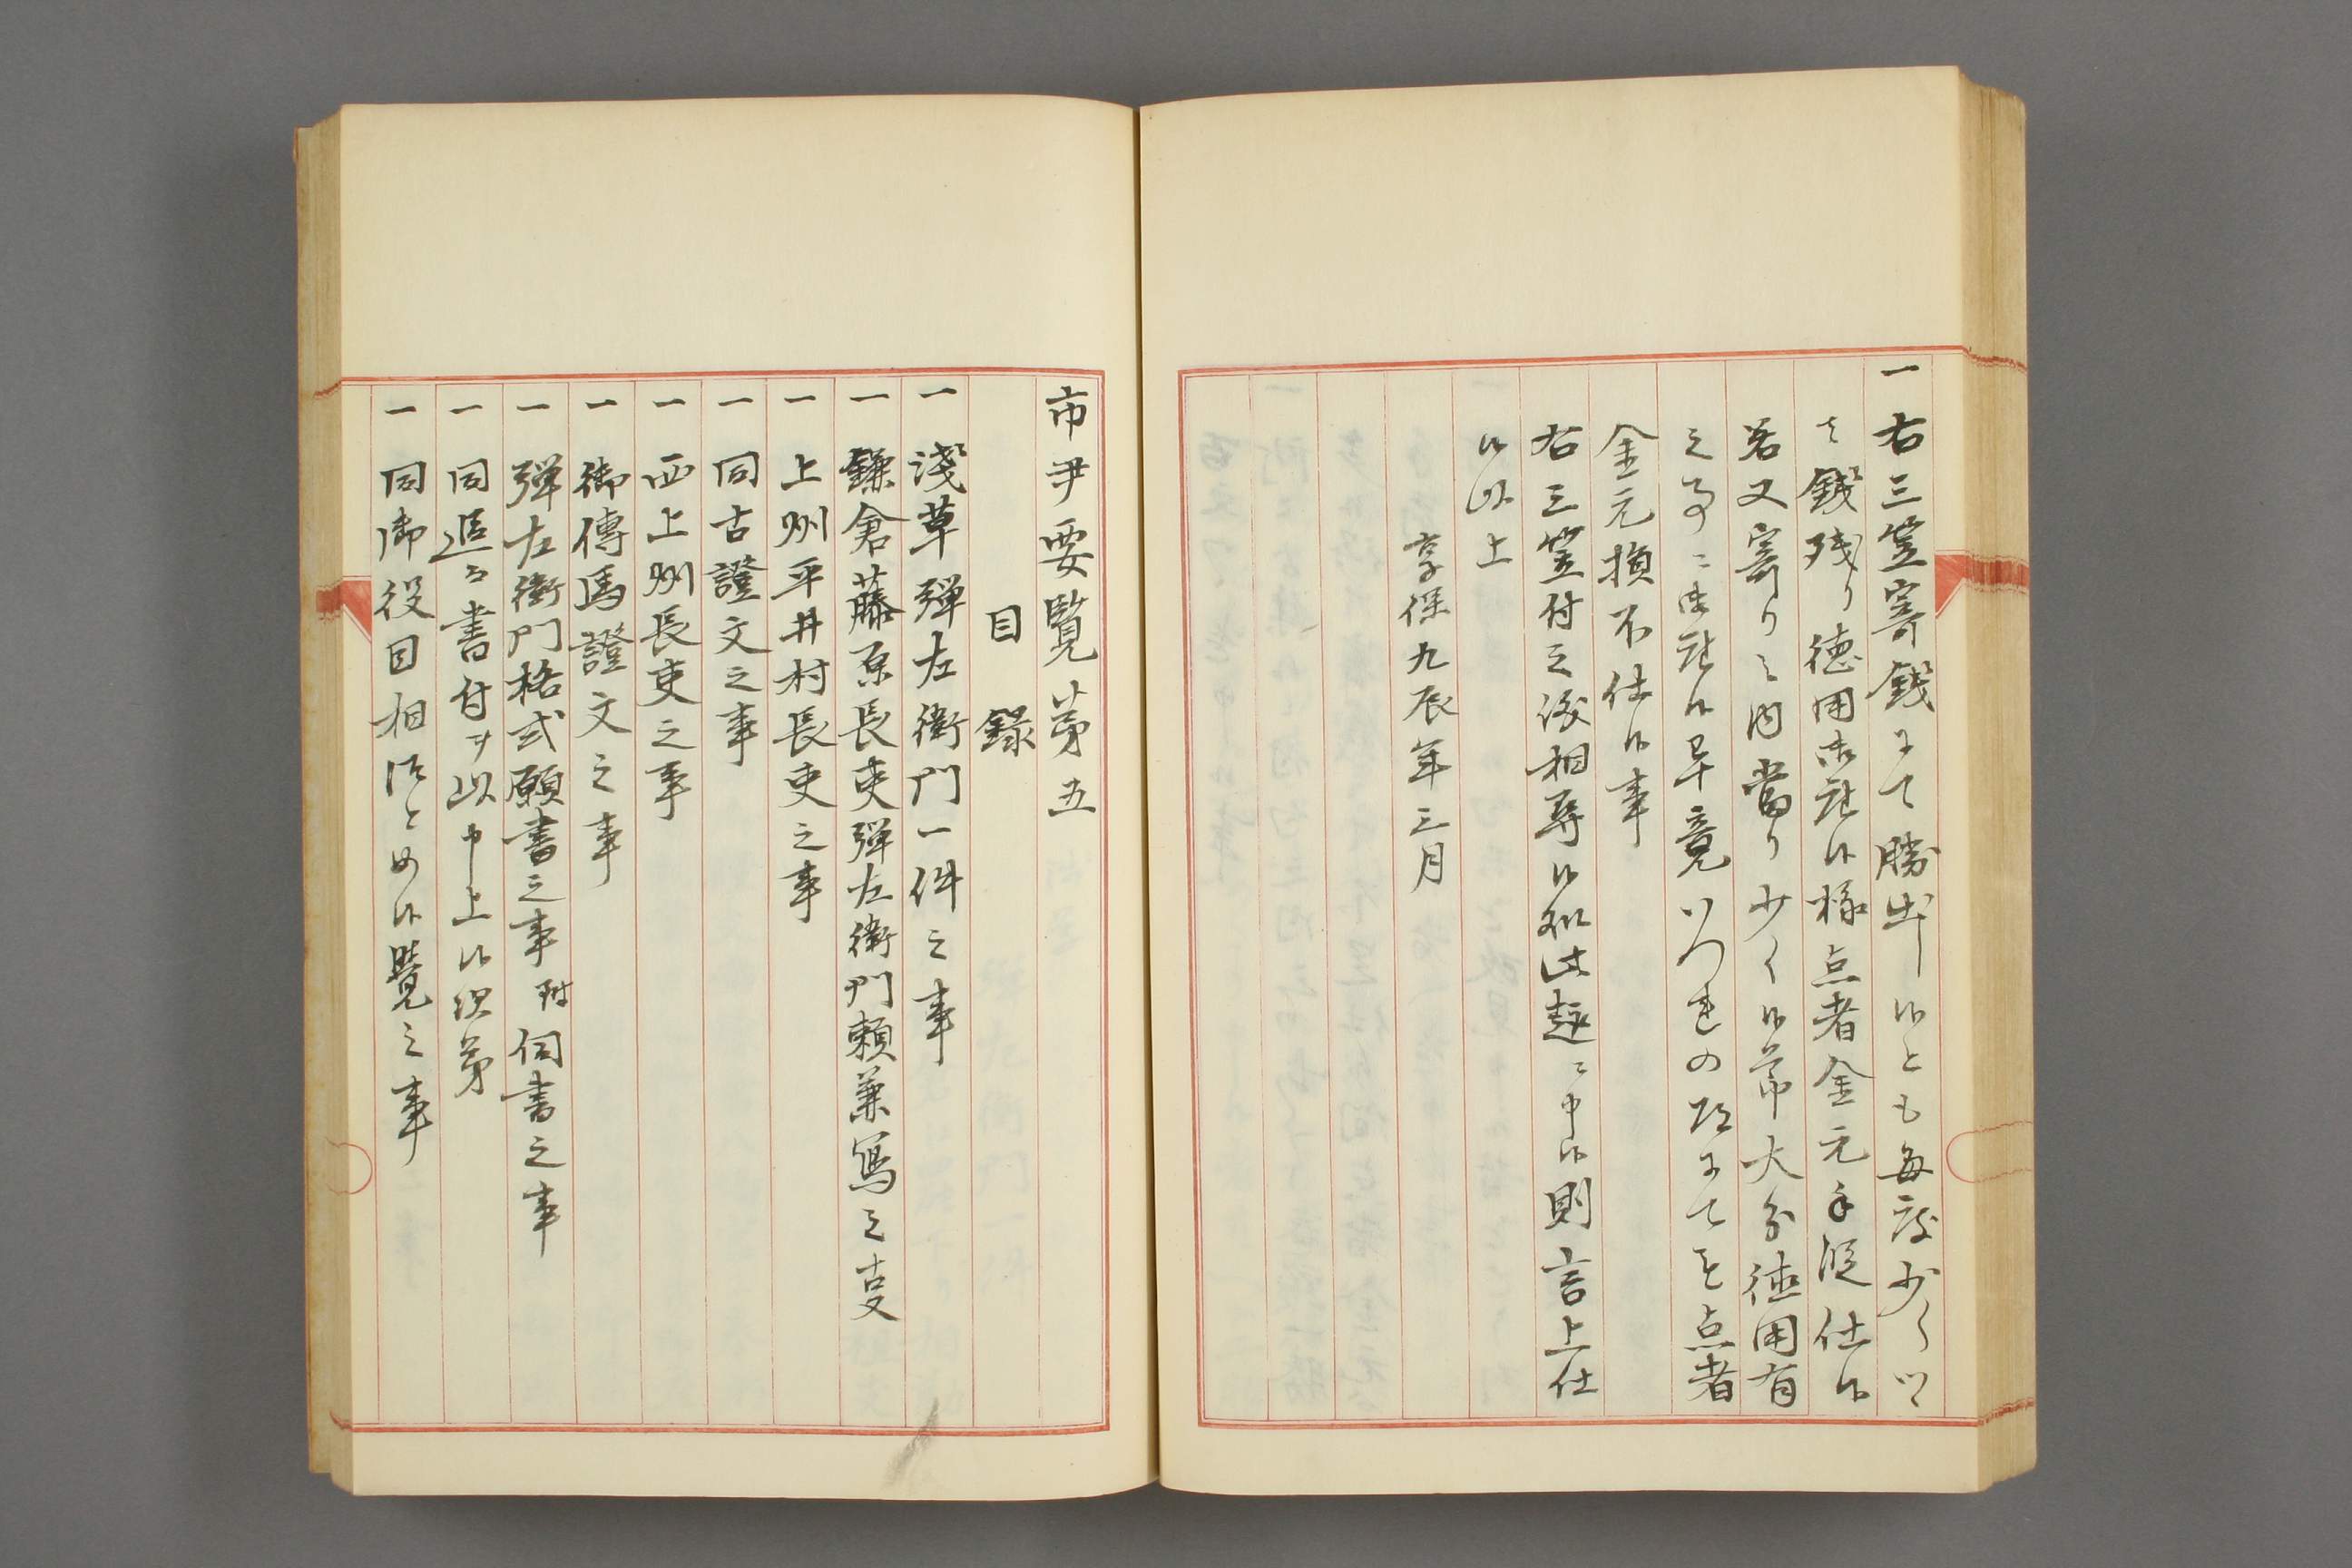 一 右三笠寄銭ニて勝出候とも毎度少〻ツヽ
 銭残り徳用御座候様点者金元手段仕候
若又寄り之内当り少く候節大分徳用有
之事ニ御座候畢竟いつれの政ニても点者
金元損不仕候事
右三笠付之後相尋候処此趣ニ申候則言上仕
候以上
享保九辰年三月
市尹要覧第五
目録
一 淺草弾左衛門一件之事
一 鎌倉藤原長吏弾左衛門頼兼写之叓
一 上州平井村長吏之事
一 同古證文之事
一 西上州長吏之事
一 御傳馬證文之事
一 弾左衛門格式願書之事 附 伺書之事
一 同追而書付ヲ以申上候次第
一 同御役目相 とめ候覺之事